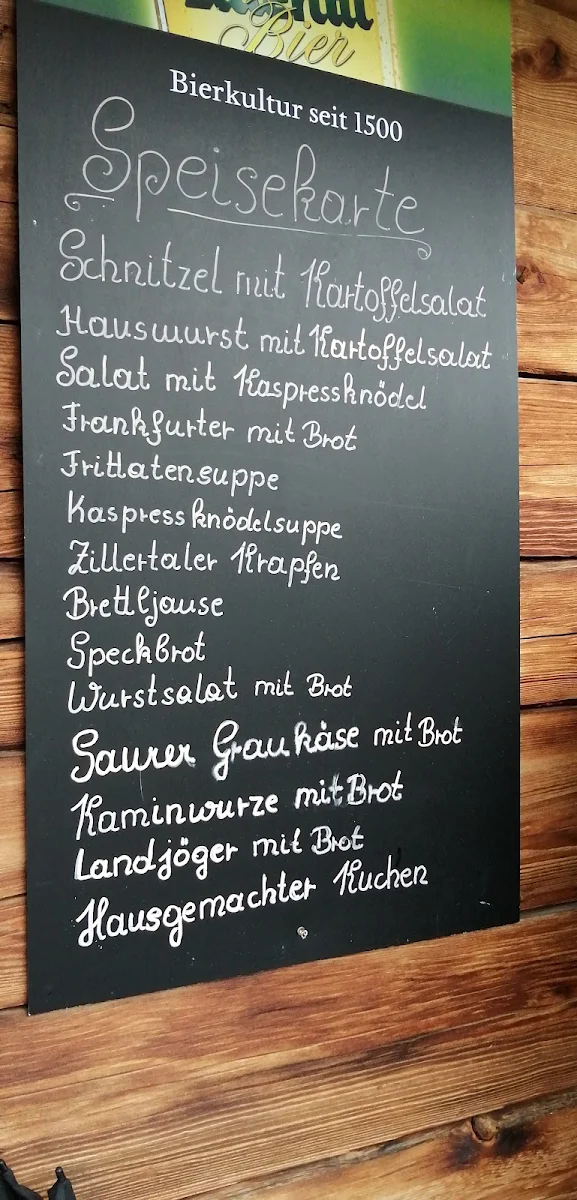 Bier
Bierkultur seit 1500
Speisekarte
Schnitzel mit Kartoffelsalat
Hauswurst mit Kartoffelsalat
Salat mit Kaspressknödel
Frankfurter mit Brot
Frittatensuppe
Kaspressknödelsuppe
Zillertaler Krapfen
Brettljause
Speckbrot
Wurstsalat mit Brot
Saurer Graukäse mit Brot
Kaminwurze mit Brot
Landjöger mit Brot
Hausgemachter Kuchen